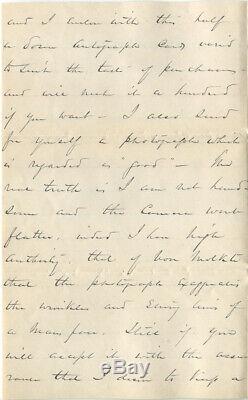 and I enclose with this half
a dozen Autograph Cards varied
to suit the taste of purchasers
and will next it a hundred
if you want - I also send
for yourself a photograph which
is regarded as "good" - The
real truth is I am not hand-
some and the Camera wont
flatter, indeed I have high
Authority, that of von Moltke
that the photograph exaggerates
the wrinkles and
of a Mans face. Still if you
will accept it with the assu-
rance that I desire to keep a
ebay